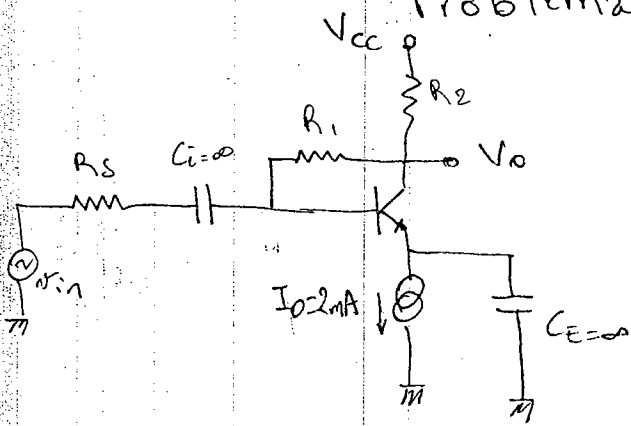 Problema
Vcc
R2
R1
Vo
Rs
Ci=∞
vin
Io=2mA
CE=∞